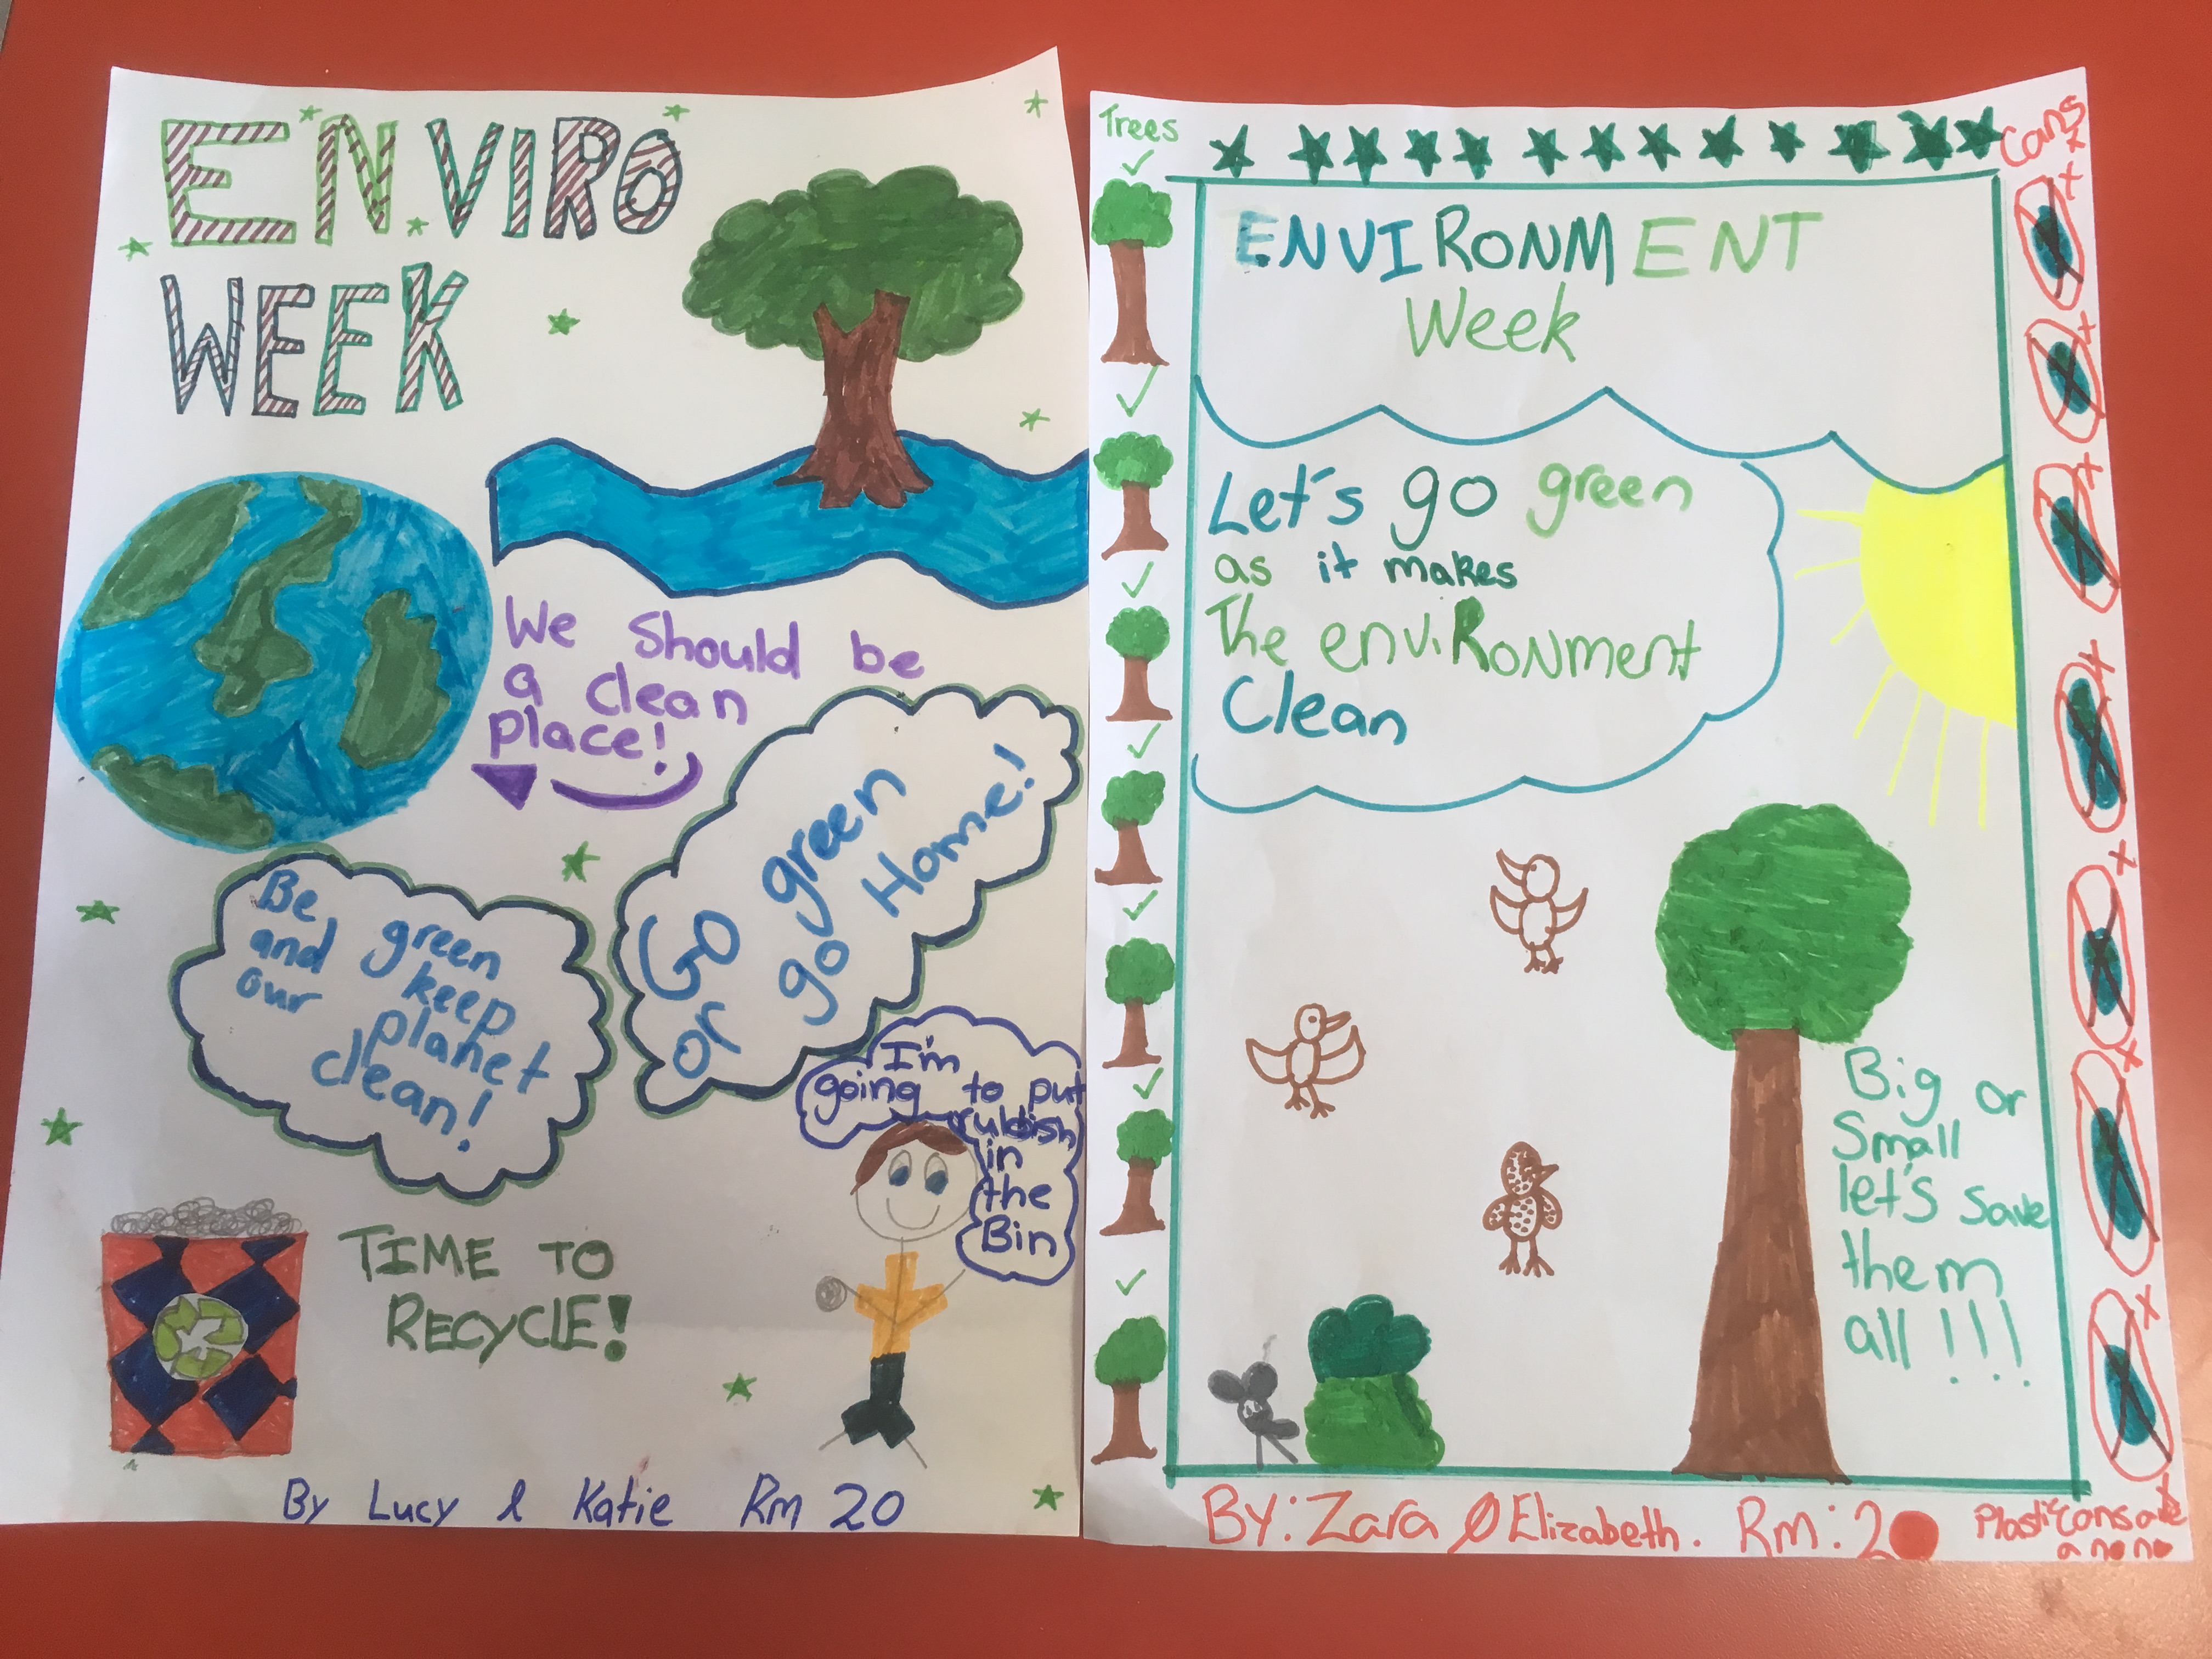 ENVIRO
WEEK
We Should be
a clean
place!
Go green
or go Home!
Be green
and keep
our planet
clean!
I'm
going to put
rubbish
in
the
Bin
TIME TO
RECYCLE!
By Lucy & Katie Rm 20
Trees
Cans
ENVIRONMENT
Week
Let's go green
as it makes
The enviRoNment
Clean
Big or
Small
let's save
them
all!!!
By: Zara & Elizabeth. Rm: 20
Plastic cans are
a no no